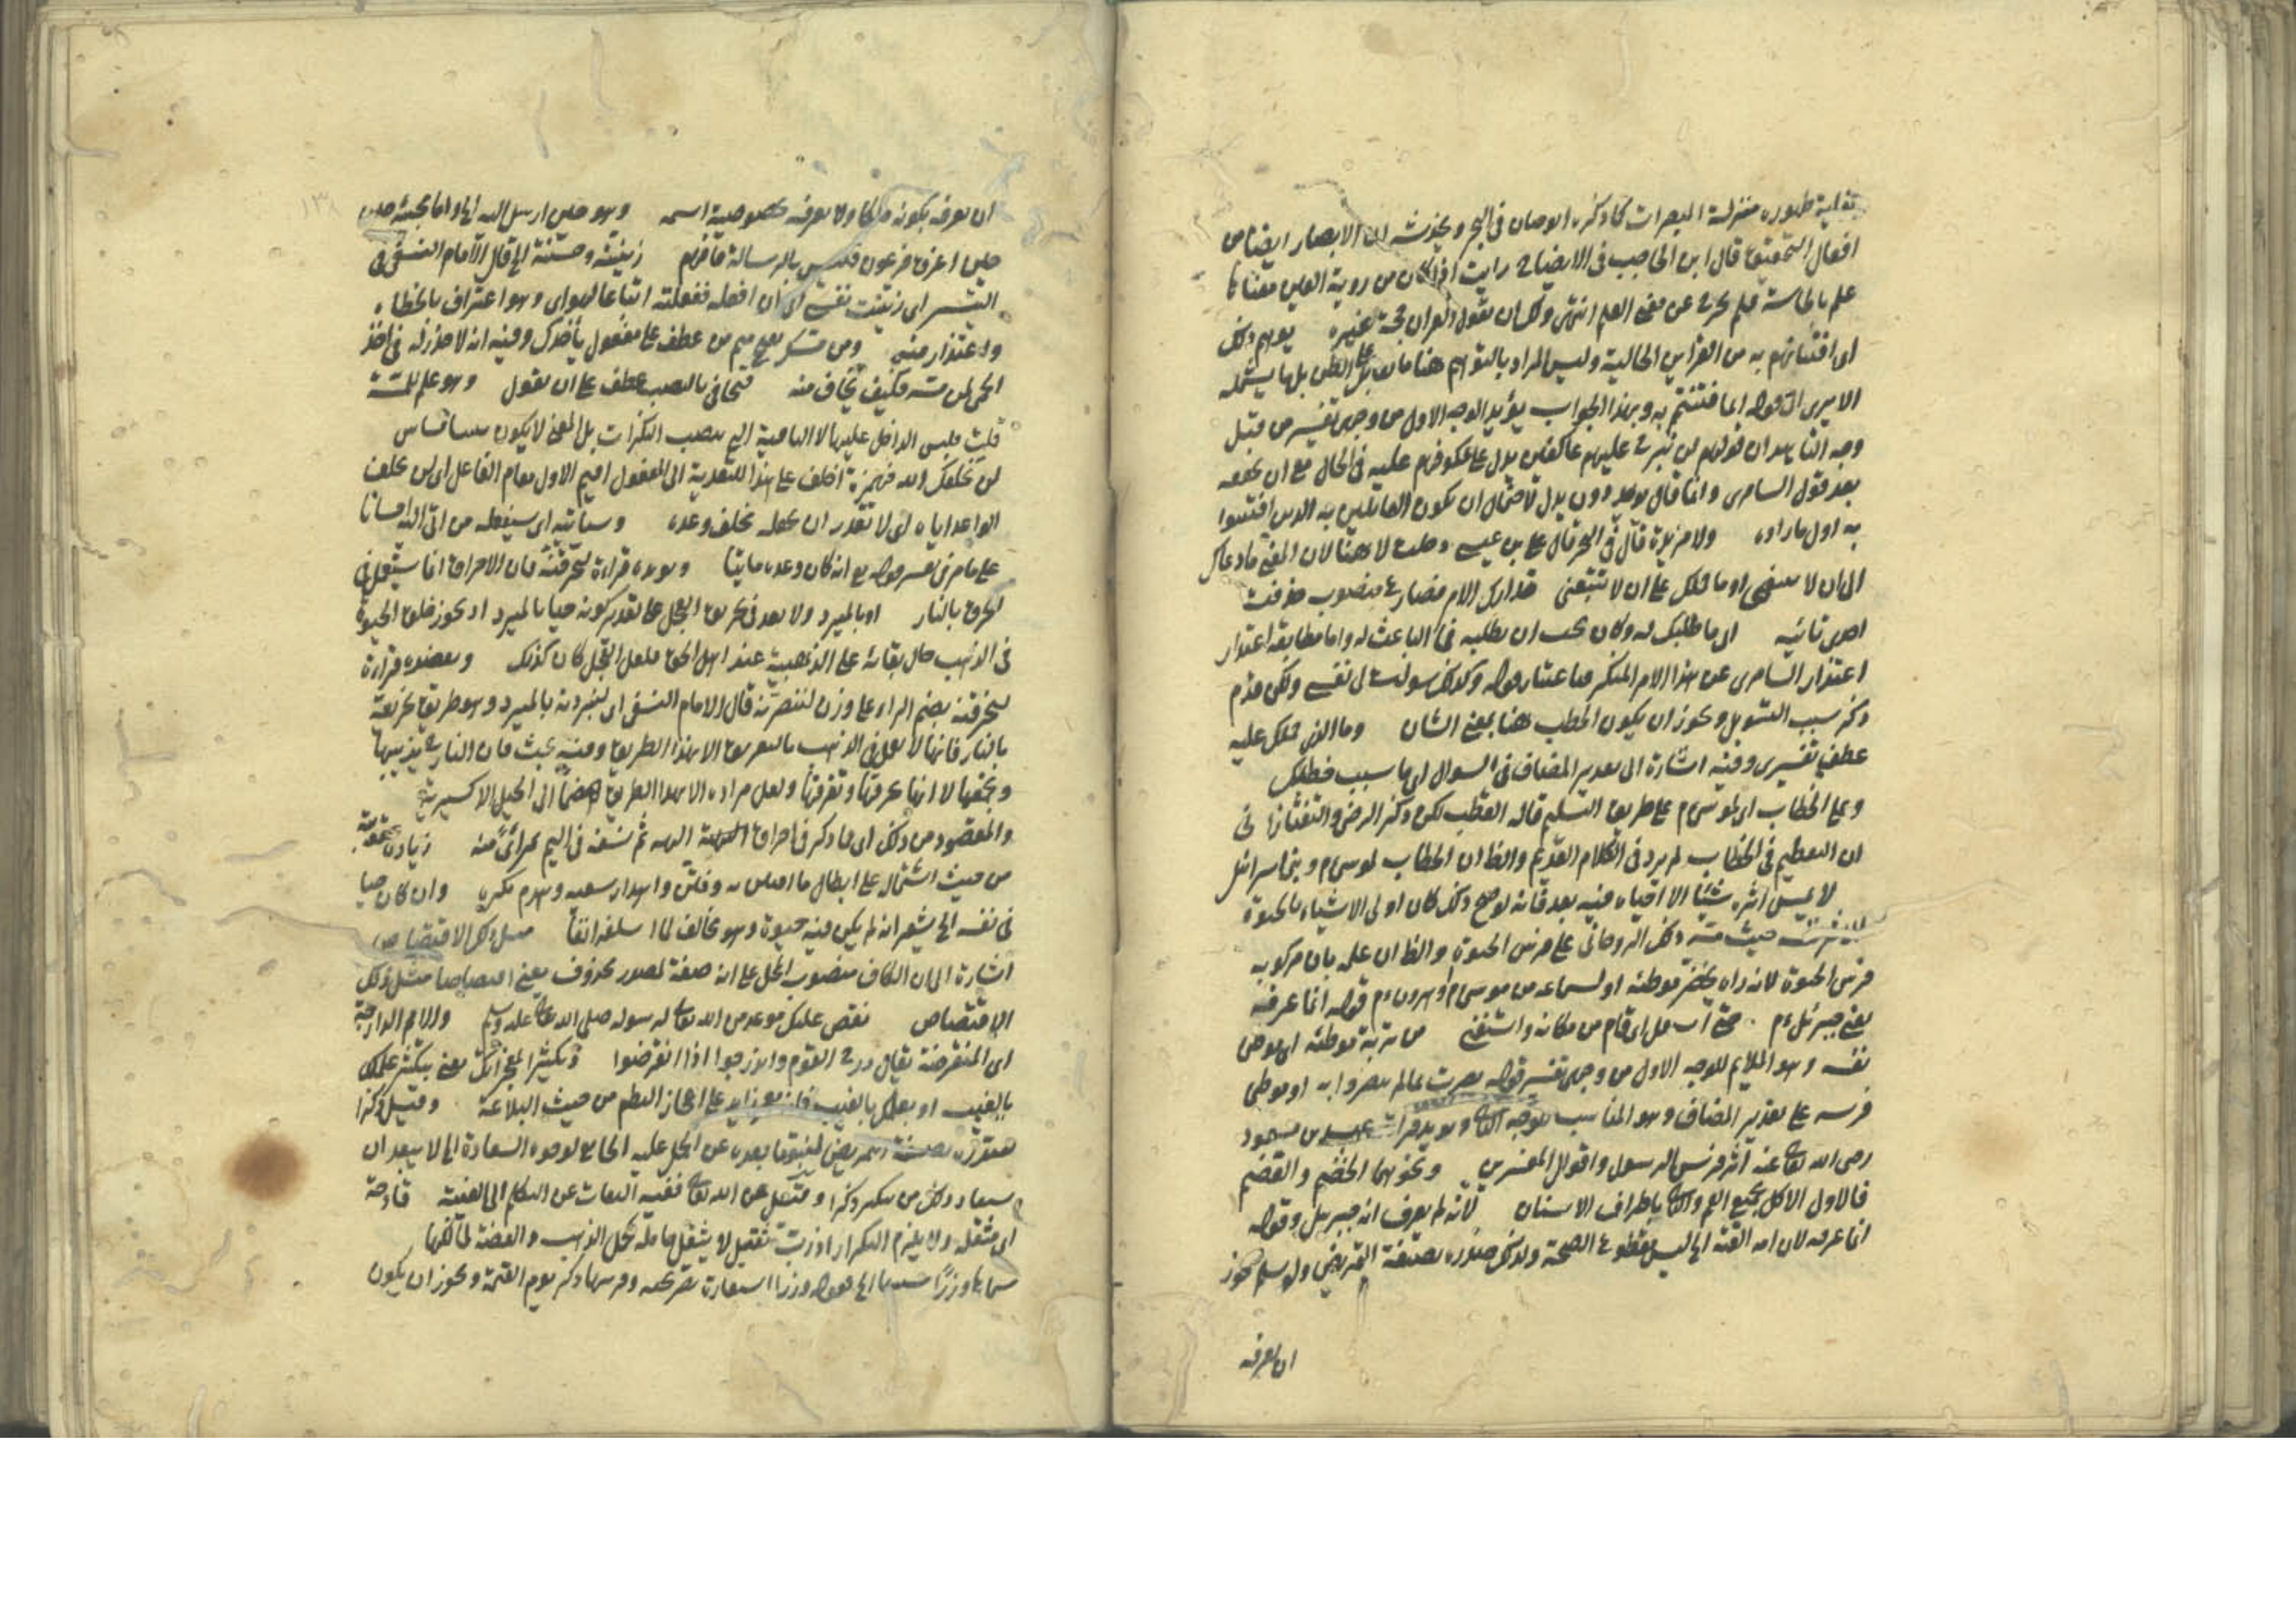 ظهوره منزلة المبصرات كما ذكره ابو حيان في البحر ويخدشه ان الابصار ايضا من
افعال التحقيق قال ابن الحاجب في الايضاح رايت اذا كان من روية العين معناها
علم بالحاسة فلم يخرج عن معنى العلم انتهى ولك ان تقول القران حجة غيره يوهم ذلك
اى افتتانهم به من القراين الحالية وليس المراد بالتوهم هنا ما يقابل الظن بل ما يشمله
الا يرى الى قوله انما فتنتم به وبهذا الجواب يؤيد الوجه الاول من وجهى تفسير من قبل
وجه التاييد ان قولهم لن نبرح عليه عاكفين يدل على عكوفهم عليه في الحال مع ان
بعد قول السامرى وانما قال يويد دون يدل لاحتمال ان يكون القائلين به الذين افتتنوا
به اول ما راوه ولا مزيدة قال في البحر قال على بن عيسى دخلت لا هنا لان المعنى ما دعاك
الى ان لا تتبعنى او ما حملك على ان لا تتبعنى
اخرى تائيه اى ما طلبك له وكان يجب ان يطلبه في الباعث له واما مطابقة اعتذار
اعتذار السامرى عن هذا الامر المنكر فباعتبار قوله وكذلك سولت لى نفسى ولكن قدم
ذكر سبب التسويل ويجوز ان يكون الخطب هنا بمعنى الشان وما الذى حملك عليه
عطف تفسيرى وفيه اشارة الى تقدير المضاف في السوال اى ما سبب خطبك
وعلى الخطاب اى لموسى م على طريق التسليم قاله القطب لكن ذكر الرضى والتفتازانى
ان التعظيم في الخطاب لم يرد في الكلام القديم والظ ان الخطاب لموسى م وبنى اسرائل
لا يمس اثره شيئا الا احياه فيه بعد فانه لو صح ذلك كان اولى الاشياء بالحيوة
حيث مسه ذلك الروحانى على فرس الحيوة والظ ان علمه بان مركوبه
فرس الحيوة لانه راه يخضر موطئه او لسماعه من موسى م وهرون م قوله انما عرفه
يعنى جبرئل م حتى استقل اى قام من مكانه واستغنى من تربة موطئه اى موطى
نفسه وهو الملايم للوجه الاول من وجهى تفسير قوله بصرت بما لم يبصروا به او موطى
فرسه على تقدير المضاف وهو المناسب للوجه الثانى ويويده قراءة عبد الله بن مسعود
رضى الله تعالى عنه اثر فرس الرسول واقوال المفسرين ونحوهما الخضم والقضم
فالاول الاكل بجميع الفم والثانى باطراف الاسنان لانه لم يعرف انه جبريل وقوله
انما عرفه لان امه القته الخ ليس مقطوع الصحة ولذلك صدره بصيغة التمريض ولو سلم يجوز
ان يعرفه
ان يعرفه بكونه ملكا ولا يعرفه بخصوصية اسمه وهو حين ارسل اليه الخ واما مجيئه حين
حين اغرق فرعون فليس بالرسالة فافهم زينته وحسنته الخ قال الامام النسفى في
التيسير اى زينت نفسى لى ان افعله ففعلته اتباعا لهواى وهو اعتراف بالخطاء
واعتذار منه ومن مسك بفتح ميم من عطف على مفعول يأخذك وفيه انه لا ضرر له في اخذ
الحمى لمن مسه فكيف يخاف منه فتحافى بالنصب عطف على ان تقول وهو علم للمسة
قلت فليس الداخل عليها لا النافية التى ينصب النكرات بل المعنى لا يكون
لن يخلفك الله فهمزة اخلف على هذا للتعدية الى المفعول اقيم الاول مقام الفاعل اى لن يخلف
الواعد اياه اى لا تقدر ان تجعله مخلف وعده وسياتيه اى سيفعله من اتى اليه احسانا
على ما مر في تفسير قوله تع انه كان وعده ماتيا ويويده قراءة لنحرقنه فان الاحراق انما يستعمل في
الحرق بالنار او بالمبرد ولا بعد في تحريق العجل على تقدير كونه حيا بالمبرد اذ يجوز خلق الحيوة
في الذهب حال بقائه على الذهبية عند اهل الحق فلعل العجل كان كذلك ويعضده قراءة
لنحرقنه بضم الراء على وزن لننصرنه قال الامام النسفى اى لنبردنه بالمبرد وهو طريق تحريقه
بالنار فانها لا تعمل في الذهب بالتفريق الا بهذا الطريق وفيه بحث فان النار تذيبها
وتجمعها لا انها تحرقها وتفرقها ولعل مراده الا بهذا الطريق الى الحيل الاكسيرية
والمقصود من ذلك اى ما ذكر في احراق الهه ثم نسفه في اليم بمرائ منه زيادة عقوبة
من حيث اشتماله على ابطال ما وفتن واهدار سعيه وهدم مكره وان كان حيا
في نفسه الخ يشعر انه لم يكن فيه حيوة وهو مخالف لما اسلفه انفا مثل ذلك الاقتصاص
اشارة الى ان الكاف منصوب المحل على انه صفة لمصدر محذوف يعنى اقتصاصا مثل ذلك
الاقتصاص نقص عليك موعد من الله تعالى لرسوله صلى الله تعالى عليه وسلم والامم الدارجة
اى المنقرضة يقال درج القوم واندرجوا اذا انقرضوا وتكثيرا لمعجزاتك يعنى بتكثير علمك
بالغيب او بعلمك بالغيب فانه معجز زايد على اعجاز النظم من حيث البلاغة وقيل ذكرا
صدره بصيغة التمريض لنبو ما بعده عن الحمل عليه الجامع لوجوه السعادة الخ لا يبعد ان
يستفاد ذلك من تنكير ذكرا وقيل عن الله تعالى ففيه التفات عن التكلم الى الغيبة فادحة
اى مثقلة ولا يلزم التكرار اذ رب ثقيل لا يثقل حامله كحمل الذهب والفضة لمالكها
سماها وزرا الخ فقوله وزرا استعارة تصريحية وقرينتها ذكر يوم القيمة ويجوز ان يكون